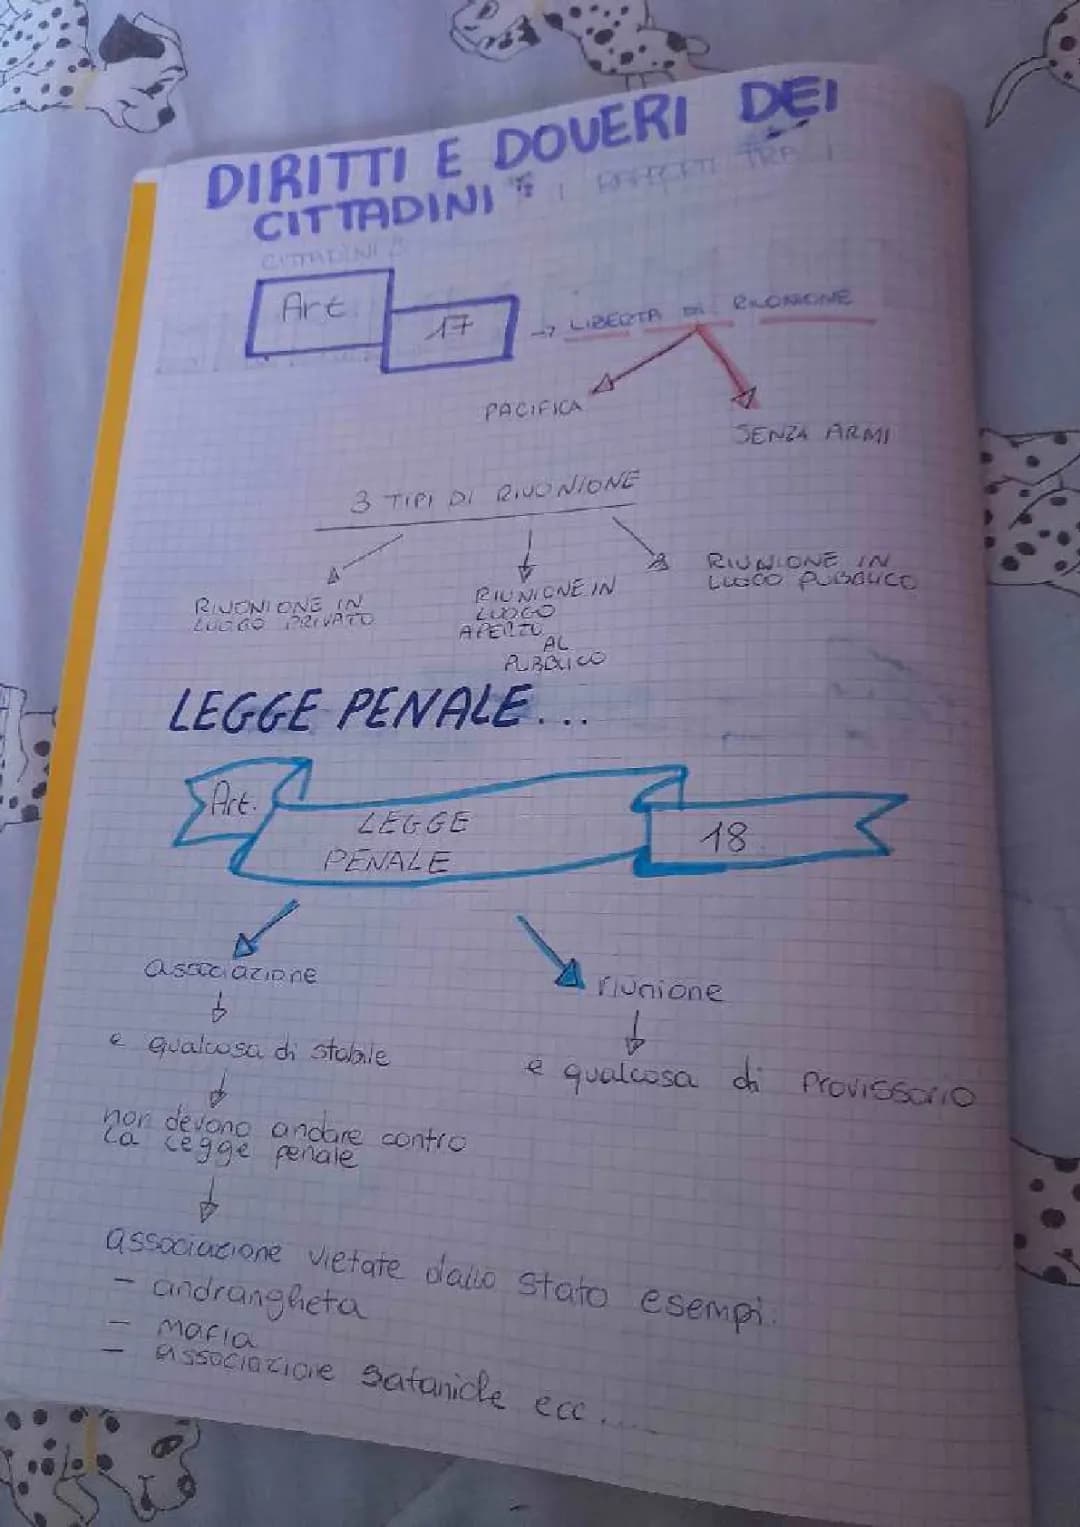 DIRITTI E DOVERI DEI
CITTADINI
I RAPPORTI TRA I
CITTADINI
Art. 17 → LIBERTA DI RIUONIONE
PACIFICA
SENZA ARMI
3 TIPI DI RIUONIONE
RIUONIONE IN
LUOGO PRIVATO
RIUNIONE IN
LUOGO
APERTO
AL
PUBBLICO
RIUNIONE IN
LUOGO PUBBLICO
LEGGE PENALE...
Art.
LEGGE
PENALE
18
associazione
riunione
è qualcosa di stabile
è qualcosa di Provissorio
non devono andare contro
la legge penale
associazione vietate dallo stato esempi:
- andrangheta
- mafia
- associazione sataniche ecc....